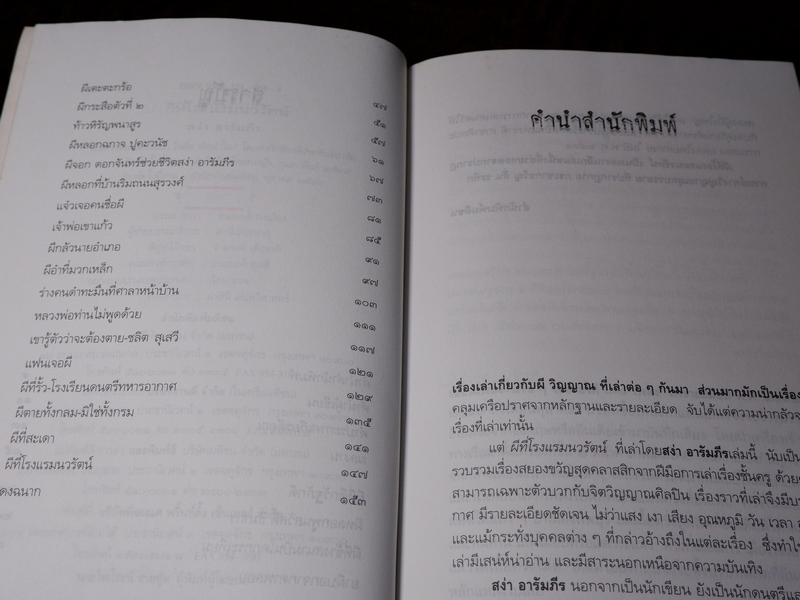 ผีเตะตะกร้อ
ผีกระสือตัวที่ ๒ ๔๗
ท้าวหิรัญพนาสูร ๕๑
ผีหลอกฌกาจ ปูคะวนัช ๕๗
ผีจอก ดอกจันทร์ช่วยชีวิตสง่า อารัมภีร ๖๑
ผีหลอกที่บ้านริมถนนสุรวงศ์ ๖๗
แจ๋วเจอคนชื่อผี ๗๓
เจ้าพ่อเขาแก้ว ๘๑
ผีกลัวนายอำเภอ ๘๕
ผีอำที่มวกเหล็ก ๙๑
ร่างคนดำทะมึนที่ศาลาหน้าบ้าน ๙๗
หลวงพ่อท่านไม่พูดด้วย ๑๐๓
เขารู้ตัวว่าจะต้องตาย-ชลิต สุเสวี ๑๑๑
แฟนเจอผี ๑๑๗
ผีที่รั้ว-โรงเรียนดนตรีทหารอากาศ ๑๒๑
ผีตายทั้งกลม-มิใช่ทั้งกรม ๑๒๙
ผีที่สะเดา ๑๓๕
ผีที่โรงแรมนวรัตน์ ๑๔๑
ดงฉนาก ๑๔๗
๑๕๓
คำนำสำนักพิมพ์
เรื่องเล่าเกี่ยวกับผี วิญญาณ ที่เล่าต่อ ๆ กันมา ส่วนมากมักเป็นเรื่อง
คลุมเครือปราศจากหลักฐานและรายละเอียด จับได้แต่ความน่ากลัวจ
เรื่องที่เล่าเท่านั้น
แต่ ผีที่โรงแรมนวรัตน์ ที่เล่าโดยสง่า อารัมภีรเล่มนี้ นับเป็น
รวบรวมเรื่องสยองขวัญสุดคลาสสิกจากฝีมือการเล่าเรื่องชั้นครู ด้วย
สามารถเฉพาะตัวบวกกับจิตวิญญาณศิลปิน เรื่องราวที่เล่าจึงมีบร
กาศ มีรายละเอียดชัดเจน ไม่ว่าแสง เงา เสียง อุณหภูมิ วัน เวลา
และแม้กระทั่งบุคคลต่าง ๆ ที่กล่าวอ้างถึงในแต่ละเรื่อง ซึ่งทำให้
เล่ามีเสน่ห์น่าอ่าน และมีสาระนอกเหนือจากความบันเทิง
สง่า อารัมภีร นอกจากเป็นนักเขียน ยังเป็นนักดนตรีและ